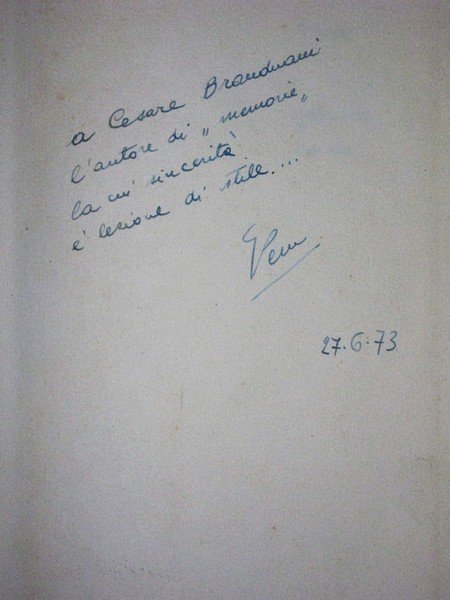 a Cesare Brandmani
l'autore di „ memorie „
la cui sincerità
è lezione di stile....
27·6·73